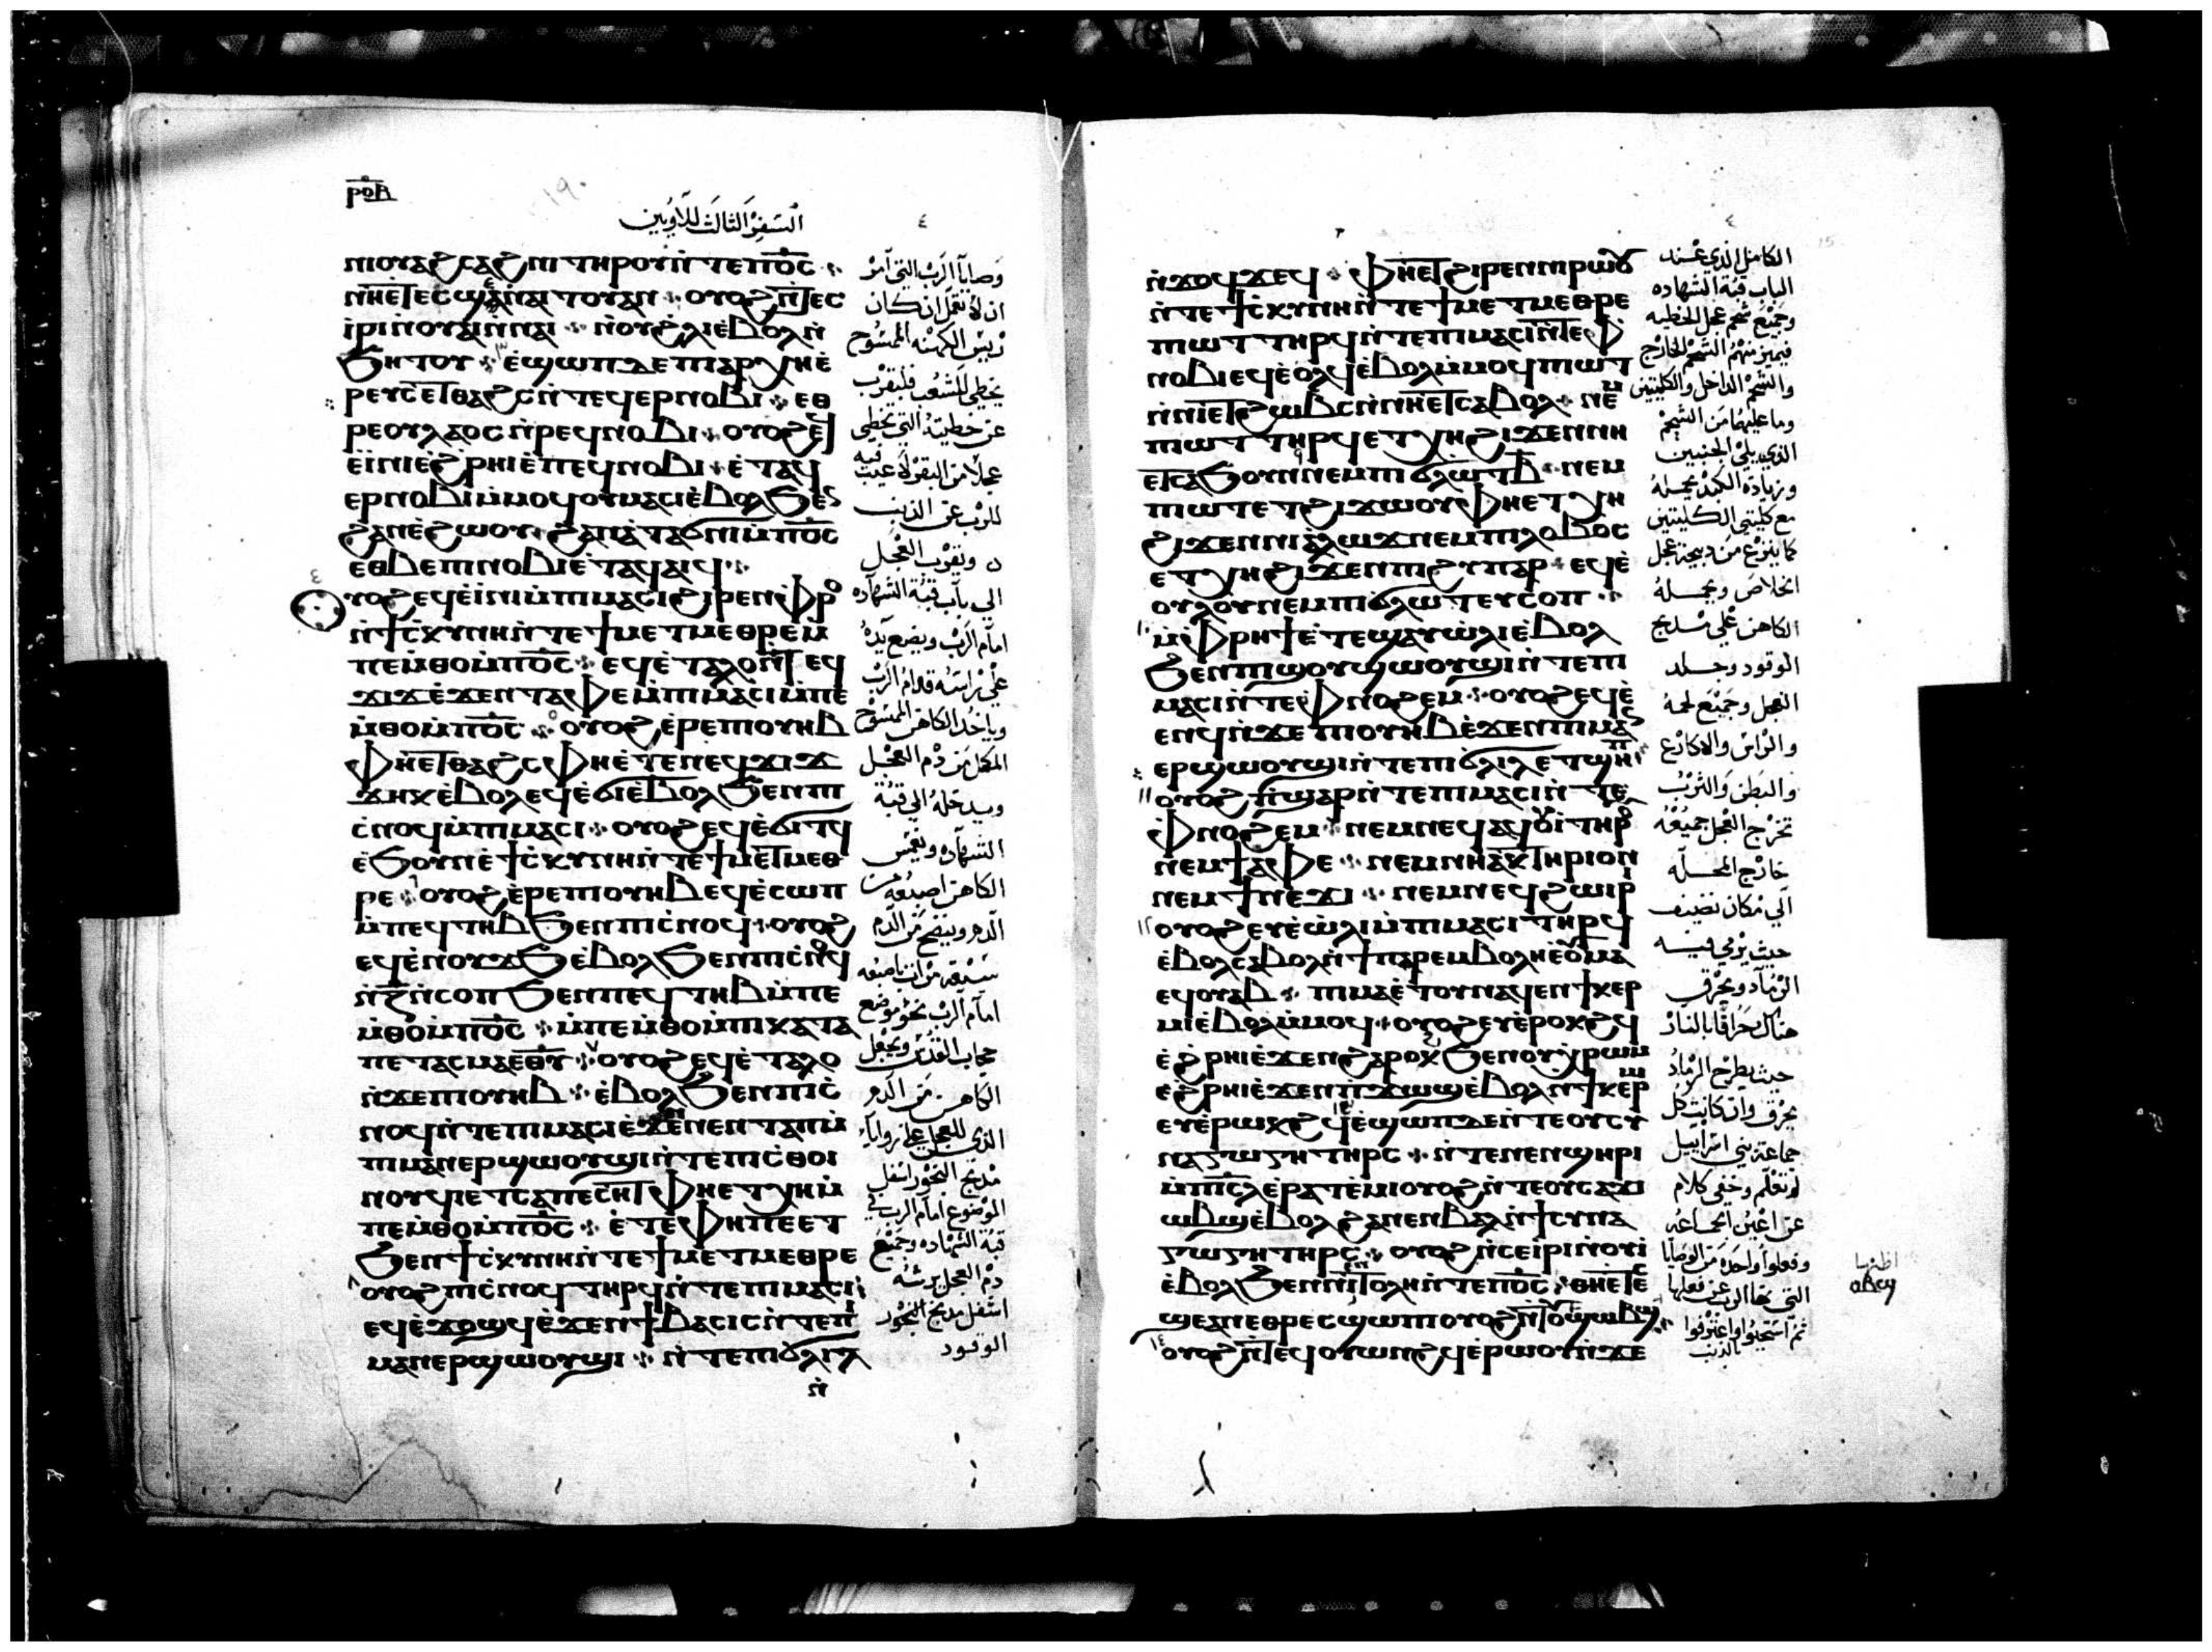 ⲣⲟⲃ
١٩٠
السفر الثالث للاويين
٤
ⲛⲓⲟⲩⲁϩⲥⲁϩⲛⲓ ⲧⲏⲣⲟⲩ ⲛ̀ⲧⲉ ⲡⲟ̅ⲥ̅
ⲛⲏⲉⲧⲉⲥϣⲉ ⲛ̀ⲁⲓⲧⲟⲩ ⲁⲛ ⲟⲩⲟϩ ⲛ̀ⲧⲉϥ
ⲓⲣⲓ ⲛ̀ⲟⲩⲁⲓ ⲛ̀ⲛⲁⲓ
ϧⲏⲧⲟⲩ ⲉ̀ϣⲱⲡ ⲇⲉ ⲡⲓⲁⲣⲭⲏⲉ̀
ⲣⲉⲩⲥ ⲉⲧⲑⲁϩⲥ ⲛ̀ⲧⲉϥⲉⲣⲛⲟⲃⲓ ⲉⲑ
ⲣⲉ ⲟⲩⲗⲁⲟⲥ ⲛ̀ⲣⲉϥⲛⲟⲃⲓ ⲟⲩⲟϩ ⲉϥ
ⲉ̀ⲓⲛⲓ ⲉ̀ϩⲣⲏⲓ ⲉ̀ⲡⲉϥⲛⲟⲃⲓ ⲉ̀ⲧⲁϥ
ⲉⲣⲛⲟⲃⲓ ⲙ̀ⲙⲟϥ ⲟⲩⲙⲁⲥⲓ ⲉ̀ⲃⲟⲗ ϧⲉⲛ
ϩⲁⲛⲉ̀ϩⲱⲟⲩ ϩⲁⲛⲁ̀ⲧⲁϭⲛⲓ ⲙ̀ⲡⲟ̅ⲥ̅
ⲉⲑⲃⲉ ⲡⲓⲛⲟⲃⲓ ⲉ̀ⲧⲁϥⲁⲓϥ
ⲟⲩⲟϩ ⲉϥⲉ̀ⲓⲛⲓ ⲙ̀ⲡⲓⲙⲁⲥⲓ ϩⲓⲣⲉⲛ ⲫⲣⲟ
ⲛ̀ϯⲥⲕⲩⲛⲏ ⲛ̀ⲧⲉ ϯⲙⲉⲧⲙⲉⲑⲣⲉ ⲙ̀
ⲡⲉⲙ̀ⲑⲟ ⲙ̀ⲡⲟ̅ⲥ̅ ⲉϥⲉ̀ⲧⲁⲗⲟ ⲛ̀ⲧⲉϥ
ϫⲓϫ ⲉ̀ϫⲉⲛ ⲧⲁⲫⲉ ⲙ̀ⲡⲓⲙⲁⲥⲓ ⲙ̀ⲡⲉ
ⲙ̀ⲑⲟ ⲙ̀ⲡⲟ̅ⲥ̅ ⲟⲩⲟϩ ⲉ̀ⲣⲉ ⲡⲓⲟⲩⲏⲃ
ⲫⲏⲉⲧⲑⲁϩⲥ ⲫⲏⲉ̀ⲧⲉ ⲛⲉϥϫⲓϫ
ϫⲏⲕ ⲉ̀ⲃⲟⲗ ⲉϥⲉ̀ϭⲓ ⲉ̀ⲃⲟⲗ ϧⲉⲛ ⲡⲓ
ⲥⲛⲟϥ ⲙ̀ⲡⲓⲙⲁⲥⲓ ⲟⲩⲟϩ ⲉϥⲉ̀ϭⲓⲧϥ
ⲉ̀ϧⲟⲩⲛ ⲉ̀ϯⲥⲕⲩⲛⲏ ⲛ̀ⲧⲉ ϯⲙⲉⲧⲙⲉⲑ
ⲣⲉ ⲟⲩⲟϩ ⲉ̀ⲣⲉ ⲡⲓⲟⲩⲏⲃ ⲉϥⲉ̀ⲥⲱⲡ
ⲙ̀ⲡⲉϥⲧⲏⲃ ϧⲉⲛ ⲡⲓⲥⲛⲟϥ ⲟⲩⲟϩ
ⲉϥⲉ̀ⲛⲟⲩϫϧ ⲉ̀ⲃⲟⲗ ϧⲉⲛ ⲡⲓⲥⲛⲟϥ
ⲛ̀ⲍ̅ ⲛ̀ⲥⲟⲡ ϧⲉⲛ ⲡⲉϥⲧⲏⲃ ⲙ̀ⲡⲉ
ⲙ̀ⲑⲟ ⲙ̀ⲡⲟ̅ⲥ̅ ⲙ̀ⲡⲉⲙ̀ⲑⲟ ⲙ̀ⲡⲓⲕⲁⲧⲁ
ⲡⲉⲧⲁⲥⲙⲁ ⲉⲑⲩ ⲟⲩⲟϩ ⲉϥⲉ̀ⲧⲁⲗⲟ
ⲛ̀ϫⲉ ⲡⲓⲟⲩⲏⲃ ⲉ̀ⲃⲟⲗ ϧⲉⲛ ⲡⲓⲥ
ⲛⲟϥ ⲛ̀ⲧⲉ ⲡⲓⲙⲁⲥⲓ ⲉ̀ϫⲉⲛ ⲛⲉⲛⲧⲁⲡ ⲙ̀
ⲡⲓⲙⲁⲛⲉⲣϣⲱⲟⲩϣⲓ ⲛ̀ⲧⲉ ⲡⲓⲥⲑⲟⲓ
ⲛⲟⲩϥⲓ ⲉⲧⲥⲁⲡⲉⲥⲏⲧ ⲫⲏⲉⲧⲭⲏ ⲙ̀
ⲡⲉⲙ̀ⲑⲟ ⲙ̀ⲡⲟ̅ⲥ̅ ⲉ̀ⲧⲉ ⲫⲏ ⲡⲉ ⲉⲧ
ϧⲉⲛ ϯⲥⲕⲩⲛⲏ ⲛ̀ⲧⲉ ϯⲙⲉⲧⲙⲉⲑⲣⲉ
ⲟⲩⲟϩ ⲡⲓⲥⲛⲟϥ ⲧⲏⲣϥ ⲛ̀ⲧⲉ ⲡⲓⲙⲁⲥⲓ
ⲉϥⲉ̀ϫⲟϣϥ ⲉ̀ϫⲉⲛ ϯⲃⲁⲥⲓⲥ ⲛ̀ⲧⲉ ⲡⲓ
ⲙⲁⲛⲉⲣϣⲱⲟⲩϣⲓ ⲛ̀ⲧⲉ ⲡⲓϭⲗⲓⲗ
ⲛ̀
وصايا الرب التي امر
ان لا تعمل ان كان
رئيس الكهنة الممسوح
يخطي للشعب فليقرب
عن خطيته التي يخطي
عجلا من البقر لا عيب فيه
للرب عن الذنب
ويقرب العجل
الي باب قبة الشهاده
امام الرب ويضع يده
علي راسه قدام الرب
وياخد الكاهن الممسوح
المكمل من دم العجل
ويدخله الي قبة
الشهاده ويغمس
الكاهن اصبعه من
الدم وينضح من الدم
سبعة مرات باصبعه
امام الرب نحو موضع
حجاب القدس ويجعل
الكاهن من الدم
الذي للعجل علي زوايا
مذبح البخور اسفل
الموضوع امام الرب في
قبة الشهاده وجميع
دم العجل يرشه
اسفل مذبح البخور
الوقود
٤
ⲛ̀ⲭⲟϥⲭⲉϥ ⲫⲏⲉⲧϩⲓⲣⲉⲛ ⲡⲓⲣⲱⲟⲩ
ⲛ̀ⲧⲉ ϯⲥⲕⲩⲛⲏ ⲛ̀ⲧⲉ ϯⲙⲉⲧⲙⲉⲑⲣⲉ
ⲡⲓⲱⲧ ⲧⲏⲣϥ ⲛ̀ⲧⲉ ⲡⲓⲙⲁⲥⲓ ⲛ̀ⲧⲉ ⲫ
ⲛⲟⲃⲓ ⲉϥⲉ̀ⲟⲗϥ ⲉ̀ⲃⲟⲗ ⲙ̀ⲙⲟϥ ⲡⲓⲱⲧ
ⲛ̀ⲛⲓⲉⲧϩⲱⲃⲥ ⲛ̀ⲛⲏⲉⲧⲥⲁⲃⲟⲗ ⲛⲉⲙ
ⲡⲓⲱⲧ ⲧⲏⲣϥ ⲉⲧⲭⲏ ϩⲓϫⲉⲛ ⲛⲏ
ⲉⲧⲥⲁϧⲟⲩⲛ ⲛⲉⲙ ⲡⲓϭⲗⲱⲧ ⲃ̅ ⲛⲉⲙ
ⲡⲓⲱⲧ ⲉⲧϩⲓϫⲱⲟⲩ ⲫⲏⲉⲧⲭⲏ
ϩⲓϫⲉⲛ ⲛⲓⲁⲗⲱϫ ⲛⲉⲙ ⲡⲓⲗⲟⲃⲟⲥ
ⲉⲧⲭⲏ ϩⲓϫⲉⲛ ⲡⲓϩⲩⲡⲁⲣ ⲉϥⲉ̀
ⲟⲩⲗⲟⲩ ⲛⲉⲙ ⲡⲓϭⲗⲱⲧ ⲉⲩⲥⲟⲡ
ⲙ̀ⲫⲣⲏϯ ⲉ̀ⲧⲉϣⲁⲩⲱ̀ⲗⲓ ⲉ̀ⲃⲟⲗ
ϧⲉⲛ ⲡⲓϣⲟⲩϣⲱⲟⲩϣⲓ ⲛ̀ⲧⲉ ⲡⲓ
ⲙⲁⲥⲓ ⲛ̀ⲧⲉ ⲫⲛⲟϩⲉⲙ ⲟⲩⲟϩ ⲉϥⲉ̀
ⲉⲛϥ ⲛ̀ϫⲉ ⲡⲓⲟⲩⲏⲃ ⲉ̀ϫⲉⲛ ⲡⲓⲙⲁⲛ
ⲉⲣϣⲱⲟⲩϣⲓ ⲛ̀ⲧⲉ ⲡⲓϭⲗⲓⲗ
ⲟⲩⲟϩ ⲡϣⲁⲣ ⲛ̀ⲧⲉ ⲡⲓⲙⲁⲥⲓ ⲛ̀ⲧⲉ
ⲫⲛⲟϩⲉⲙ ⲛⲉⲙ ⲛⲉϥⲁϥⲟⲩⲓ ⲧⲏⲣⲟⲩ
ⲛⲉⲙ ϯⲁⲫⲉ ⲛⲉⲙ ⲛⲏⲁⲕⲧⲏⲣⲓⲟⲛ
ⲛⲉⲙ ϯⲛⲉϫⲓ ⲛⲉⲙ ⲛⲉϥϩⲱⲓⲣⲓ
ⲟⲩⲟϩ ⲉⲩⲉ̀ⲱ̀ⲗⲓ ⲙ̀ⲡⲓⲙⲁⲥⲓ ⲧⲏⲣϥ
ⲉ̀ⲃⲟⲗ ⲥⲁⲃⲟⲗ ⲛ̀ϯⲡⲁⲣⲉⲙⲃⲟⲗⲏ ⲉ̀ⲟⲩⲙⲁ
ⲉϥⲟⲩⲁⲃ ⲡⲓⲙⲁ ⲉ̀ⲧⲟⲩⲛⲁϥⲉⲛ ϯⲕⲉⲣ
ⲙⲓ ⲉ̀ⲃⲟⲗ ⲙ̀ⲙⲟϥ ⲟⲩⲟϩ ⲉⲩⲉ̀ⲣⲟⲕϩϥ
ⲉ̀ϩⲣⲏⲓ ⲉ̀ϫⲉⲛ ϩⲁⲣⲟⲭ ϧⲉⲛ ⲟⲩⲭⲣⲱⲙ
ⲉ̀ϩⲣⲏⲓ ⲉ̀ϫⲉⲛ ⲡϫⲱϣ ⲉ̀ⲃⲟⲗ ⲛ̀ϯⲕⲉⲣⲙⲓ
ⲉⲩⲉ̀ⲣⲱⲕϩϥ ⲉ̀ϣⲱⲡ ⲇⲉ ⲛ̀ⲧⲉ ⲟⲩⲥⲩ
ⲛⲁⲅⲱⲅⲏ ⲧⲏⲣⲥ ⲛ̀ⲧⲉ ⲛⲉⲛϣⲏⲣⲓ
ⲙ̀ⲡⲓⲥ̅ⲗ̅ ⲉⲣⲁⲧⲉ̀ⲙⲓ ⲟⲩⲟϩ ⲛ̀ⲧⲉ ⲟⲩⲥⲁϫⲓ
ⲱⲃϣ ⲉ̀ⲃⲟⲗ ϩⲁ ⲛⲉⲛⲃⲁⲗ ⲛ̀ϯⲥⲩⲛⲁ
ⲅⲱⲅⲏ ⲧⲏⲣⲥ ⲟⲩⲟϩ ⲛ̀ⲥⲉⲓⲣⲓ ⲛ̀ⲟⲩⲓ
ⲉ̀ⲃⲟⲗ ϧⲉⲛ ⲛⲓⲉⲛⲧⲟⲗⲏ ⲛ̀ⲧⲉ ⲡⲟ̅ⲥ̅ ⲑⲏⲉⲧⲉⲥ
ϣⲉ ⲁⲛ ⲉⲑⲣⲉⲥϣⲱⲡⲓ ⲟⲩⲟϩ
ⲟⲩⲟϩ ⲛ̀ⲧⲉϥⲟⲩⲱⲛϩϥ ⲉ̀ⲣⲱⲟⲩ ⲛ̀ϫⲉ
الكامل الذي عند
الباب قبة الشهاده
وجميع شحم عجل الخطيه
فيميز منهم الشحم الخارج
والشحم الداخل والكليتين
وما عليهما من الشحم
الذي يلي الجنبين
وزيادة الكبد يجمله
مع كليتي الكليتين
كما ينزع من دبيحة عجل
الخلاص ويجمله
الكاهن علي مدبح
الوقود وجلد
العجل وجميع لحمه
والراس والاكارع
والبطن والثرب
تخرج العجل جميعه
خارج المحله
الي مكان نضيف
حيث يرمي فيه
الرماد ويحرق
هناك حراقا بالنار
حيث يطرح الرماد
يحرق وان كانت كل
جماعة بني اسراييل
وخفي كلام
عن اعين الجماعه
وفعلوا واحده من الوصايا
التي نها الرب عن فعلها
ⲱⲃϣ